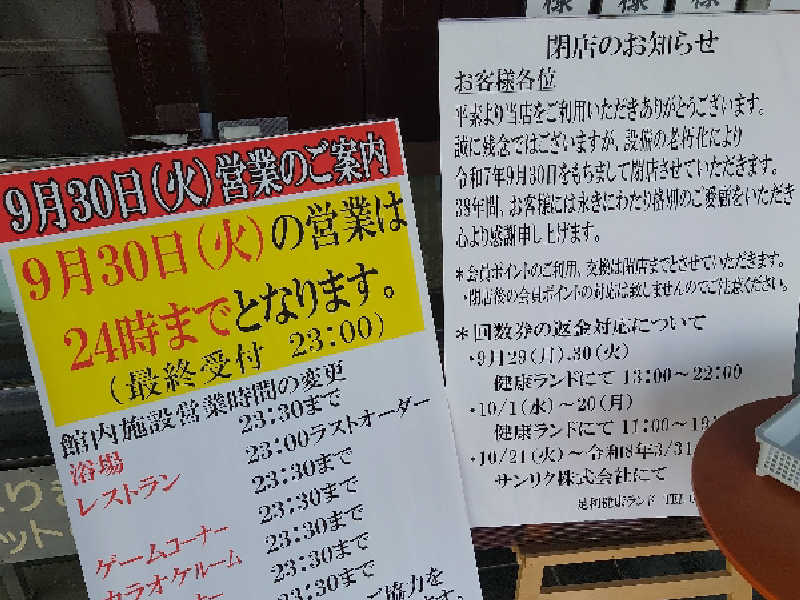 9月30日(火)営業のご案内
9月30日(火)の営業は
24時までとなります。
(最終受付 23:00)
館内施設営業時間の変更
浴場 23:30まで
レストラン 23:00ラストオーダー
23:30まで
ゲームコーナー 23:30まで
カラオケルーム 23:30まで
23:30まで
23:30まで
ご協力を
様 様 様
閉店のお知らせ
お客様各位
平素より当店をご利用いただきありがとうございます。
誠に残念ではございますが、設備の老朽化により
令和7年9月30日をもちまして閉店させていただきます。
38年間、お客様には永きにわたり格別のご愛顧をいただき
心より感謝申し上げます。
*会員ポイントのご利用、交換は閉店までとさせていただきます。
・閉店後の会員ポイントの対応は致しませんのでご注意ください。
*回数券の返金対応について
・9月29(月).30(火)
健康ランドにて 13:00〜22:00
・10/1(水)〜20(月)
健康ランドにて 11:00〜
・10/21(火)〜令和8年3/31
サンリク株式会社にて
足利健康ランド TEL